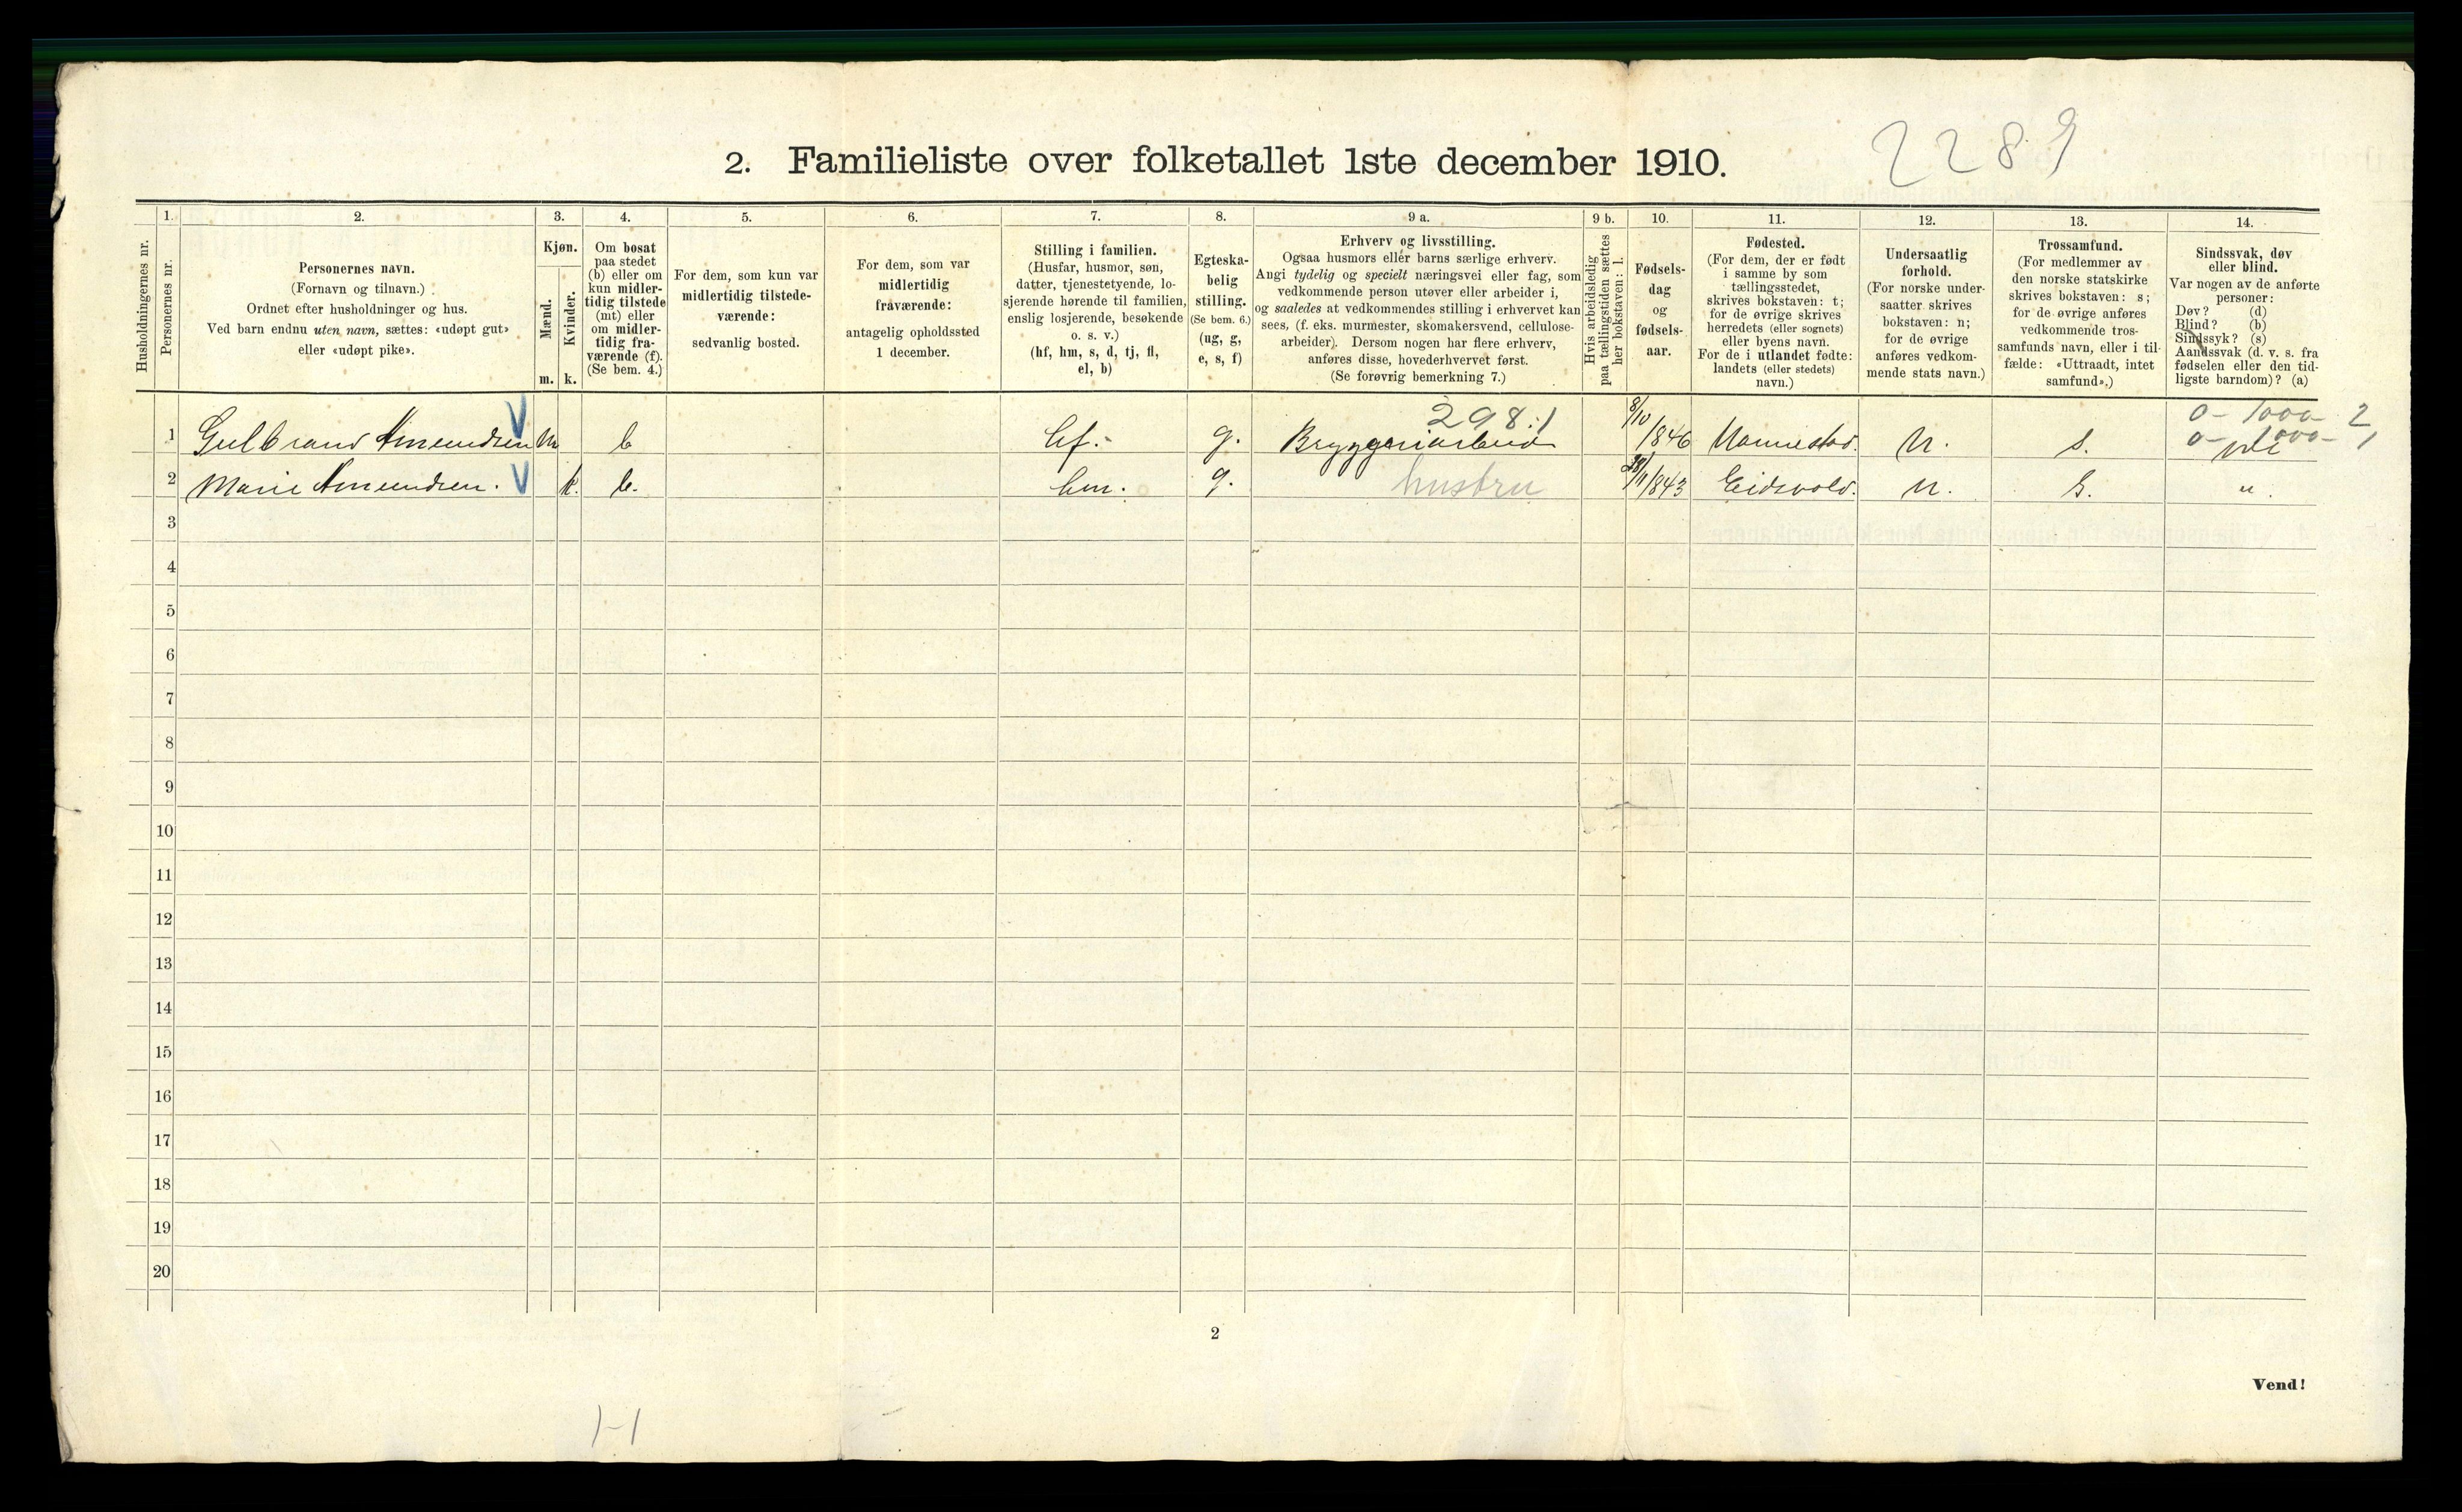 2289
2. Familieliste over folketallet 1ste december 1910.
Husholdningernes nr.
1.
Personernes nr.
2.
Personernes navn.
(Fornavn og tilnavn.)
Ordnet efter husholdninger og hus.
Ved barn endnu uten navn, sættes: «udøpt gut»
eller «udøpt pike».
3.
Kjøn.
Mænd.
Kvinder.
m. k.
4.
Om bosat
paa stedet
(b) eller om
kun midler-
tidig tilstede
(mt) eller
om midler-
tidig fra-
værende (f).
(Se bem. 4.)
5.
For dem, som kun var
midlertidig tilstede-
værende:
sedvanlig bosted.
6.
For dem, som var
midlertidig
fraværende:
antagelig opholdssted
1 december.
7.
Stilling i familien.
(Husfar, husmor, søn,
datter, tjenestetyende, lo-
sjerende hørende til familien,
enslig losjerende, besøkende
o. s. v.)
(hf, hm, s, d, tj, fl,
el, b)
8.
Egteska-
belig
stilling.
(Se bem. 6.)
(ug, g,
e, s, f)
9 a.
Erhverv og livsstilling.
Ogsaa husmors eller barns særlige erhverv.
Angi tydelig og specielt næringsvei eller fag, som
vedkommende person utøver eller arbeider i,
og saaledes at vedkommendes stilling i erhvervet kan
sees, (f. eks. murmester, skomakersvend, cellulose-
arbeider). Dersom nogen har flere erhverv,
anføres disse, hovederhvervet først.
(Se forøvrig bemerkning 7.)
9 b.
Hvis arbeidsledig
paa tællingstiden sættes
her bokstaven: l.
10.
Fødsels-
dag
og
fødsels-
aar.
11.
Fødested.
(For dem, der er født
i samme by som
tællingsstedet,
skrives bokstaven: t;
for de øvrige skrives
herredets (eller sognets)
eller byens navn.
For de i utlandet fødte:
landets (eller stedets)
navn.)
12.
Undersaatlig
forhold.
(For norske under-
saatter skrives
bokstaven: n;
for de øvrige
anføres vedkom-
mende stats navn.)
13.
Trossamfund.
(For medlemmer av
den norske statskirke
skrives bokstaven: s;
for de øvrige anføres
vedkommende tros-
samfunds navn, eller i til-
fælde: «Uttraadt, intet
samfund».)
14.
Sindssvak, døv
eller blind.
Var nogen av de anførte
personer:
Døv? (d)
Blind? (b)
Sindssyk? (s)
Aandssvak (d. v. s. fra
fødselen eller den tid-
ligste barndom)? (a)
298:1
0 - 1000 - 2
0 - 1000 - 1
1 Gulbrand Amundsen m b hf. g. Bryggeriarbeid 8/10 1846 n. s.
2 Marie Amundsen. k. b. hm. g. hustru /11 1843 Eidsvold. n. s. "
3
4
5
6
7
8
9
10
11
12
13
14
15
16
17
18
19
20
2
Vend!
1-1